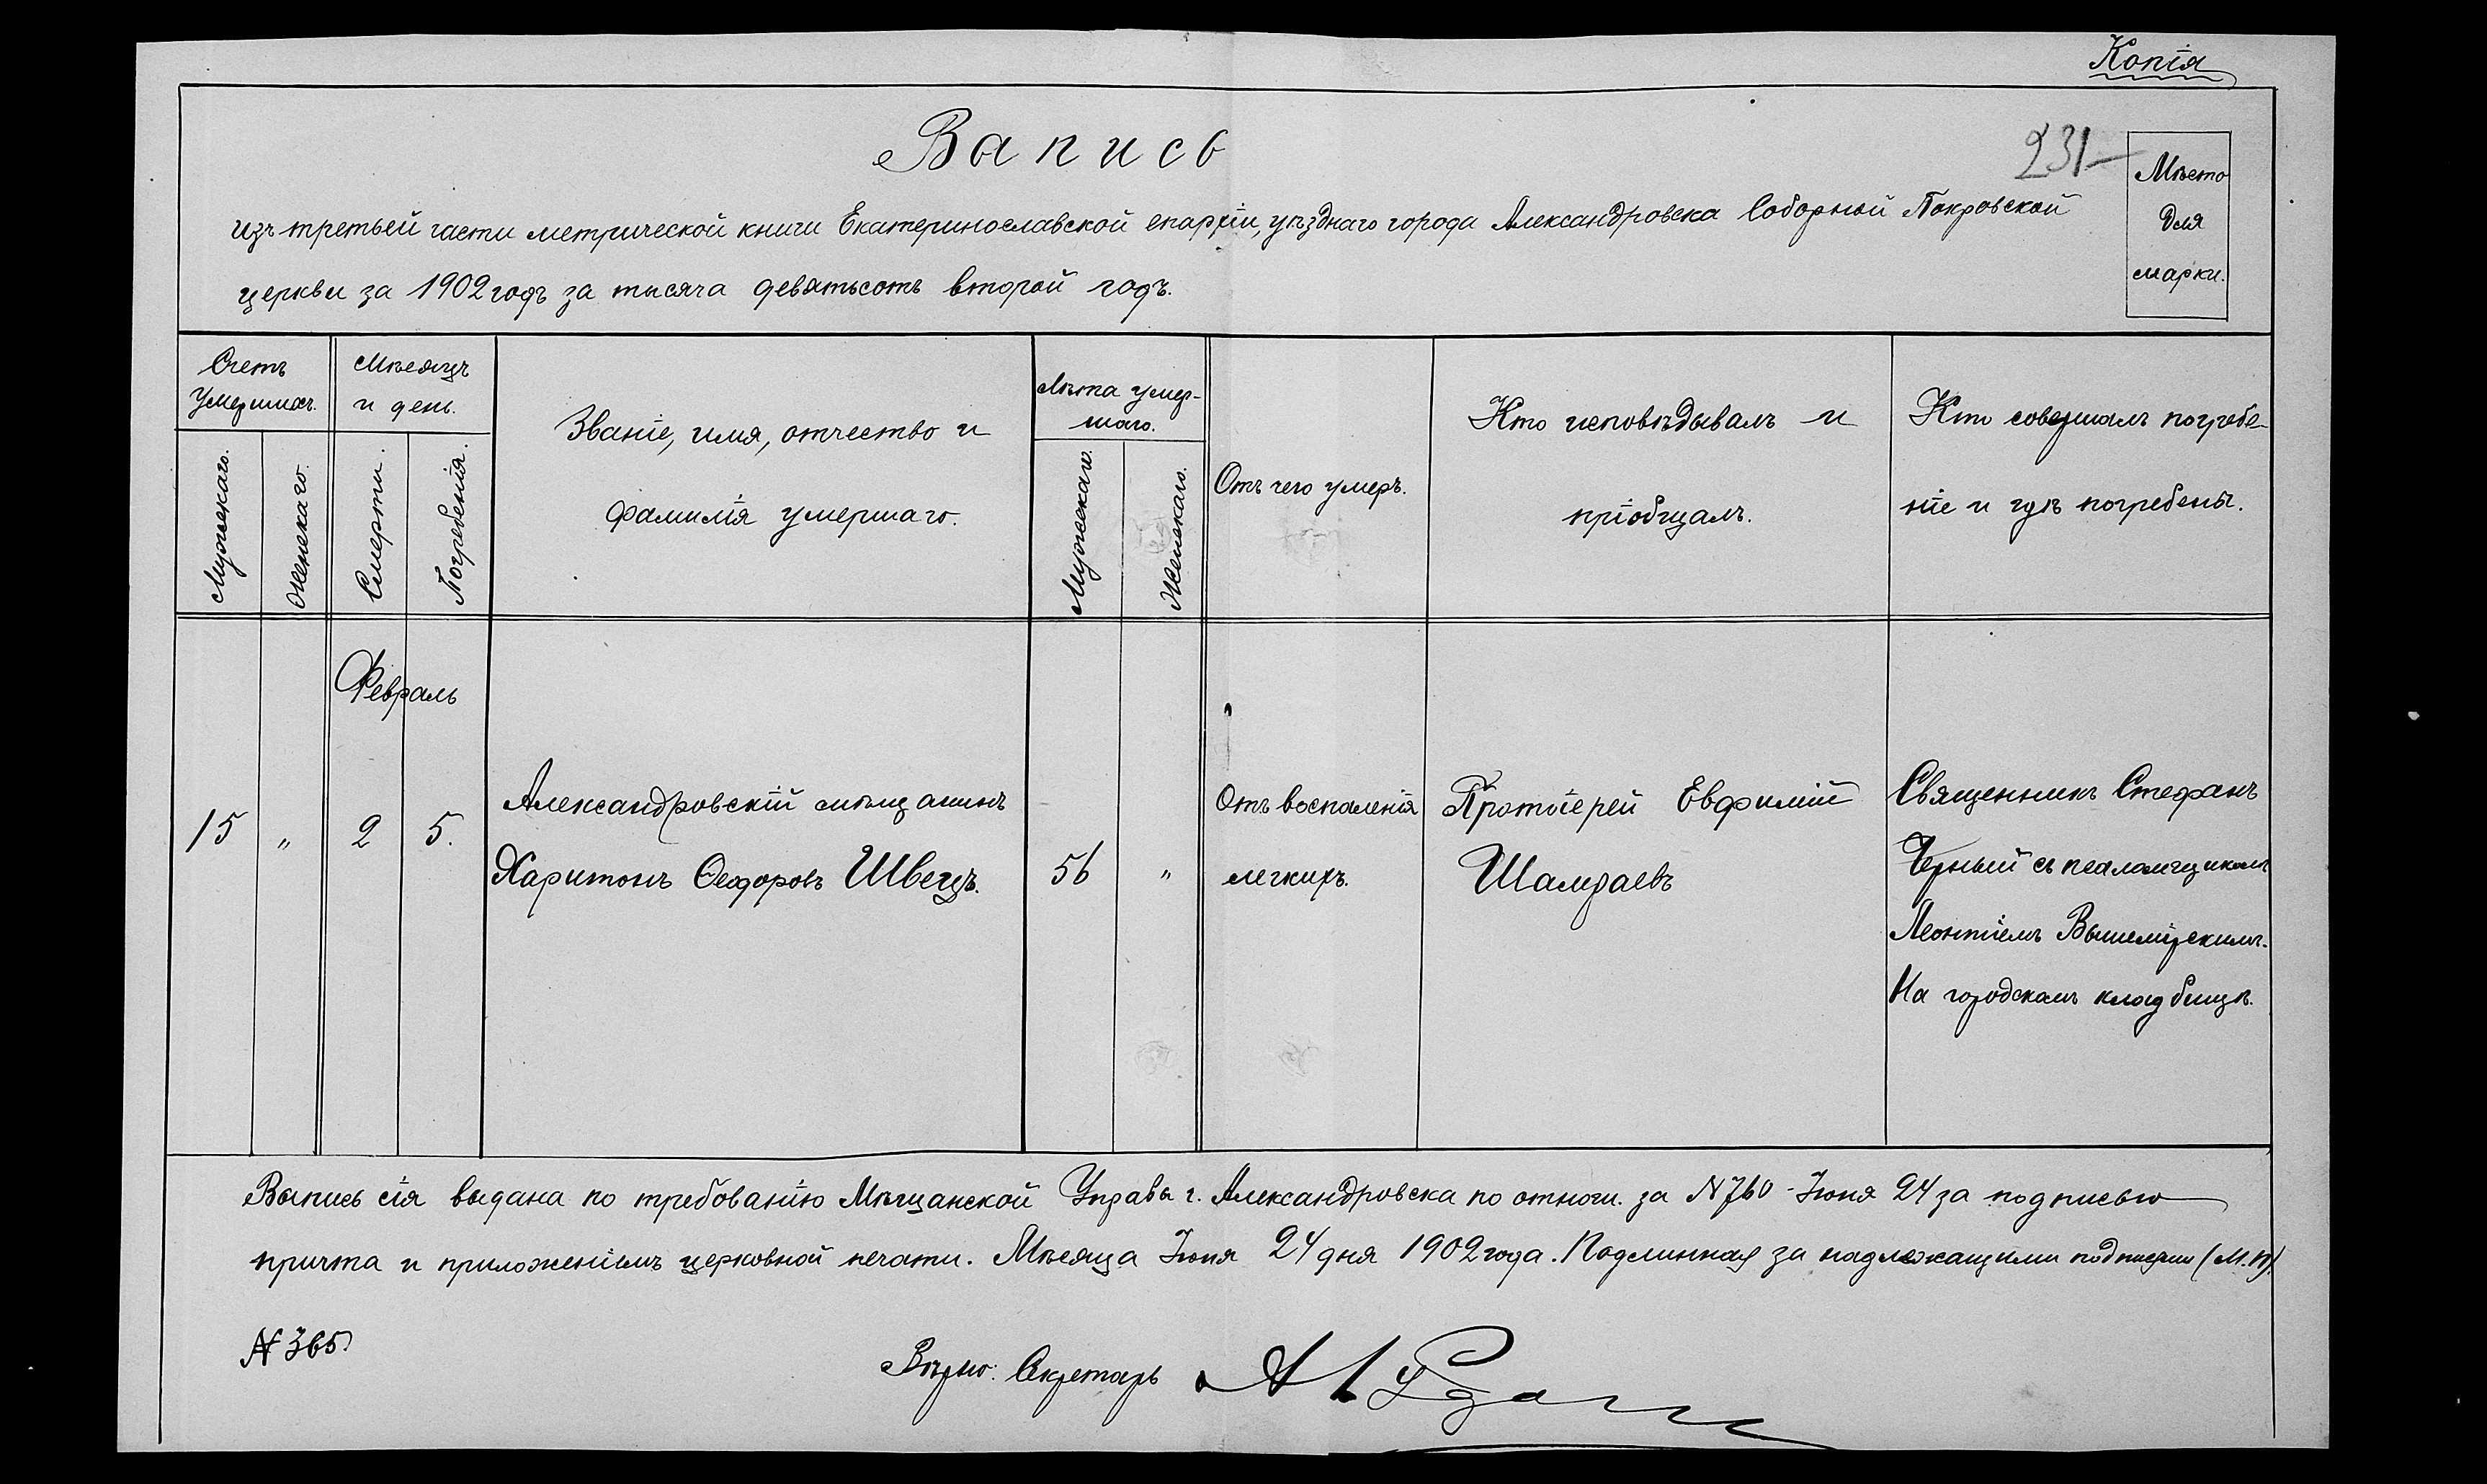 Копія
Выпись
231
Мѣсто
для
марки.
изъ третьей части метрической книги Екатеринославской епархіи, уѣзднаго города Александровска Соборной Покровской
церкви за 1902 годъ за тысяча девятьсотъ второй годъ.
Счетъ
умершихъ.
Мужескаго.
Женскаго.
Мѣсяцъ
и день.
Смерти.
Погребенія.
Званіе, имя, отчество и
фамилія умершаго.
Лѣта умер-
шаго.
Мужескаго.
Женскаго.
Отъ чего умеръ.
Кто исповѣдывалъ и
пріобщалъ.
Кто совершалъ погребе-
ніе и гдѣ погребены.
Февраль
15
"
2
5.
Александровскій мѣщанинъ
Харитонъ Ѳеодоровъ Швецъ.
56
"
Отъ воспаленія
легкихъ.
Протоіерей Евфимій
Шамраевъ
Священникъ Стефанъ
Черный съ псаломщикомъ
Леонтіемъ Вышемірскимъ.
На городскомъ кладбищѣ.
Выпись сія выдана по требованію Мѣщанской Управы г. Александровска по отнош. за N 760 - Іюня 24 за подписью
причта и приложеніемъ церковной печати. Мѣсяца Іюня 24 дня 1902 года. Подлинная за надлежащими подписями (М.П.)
N 365
Вѣрно: Секретарь